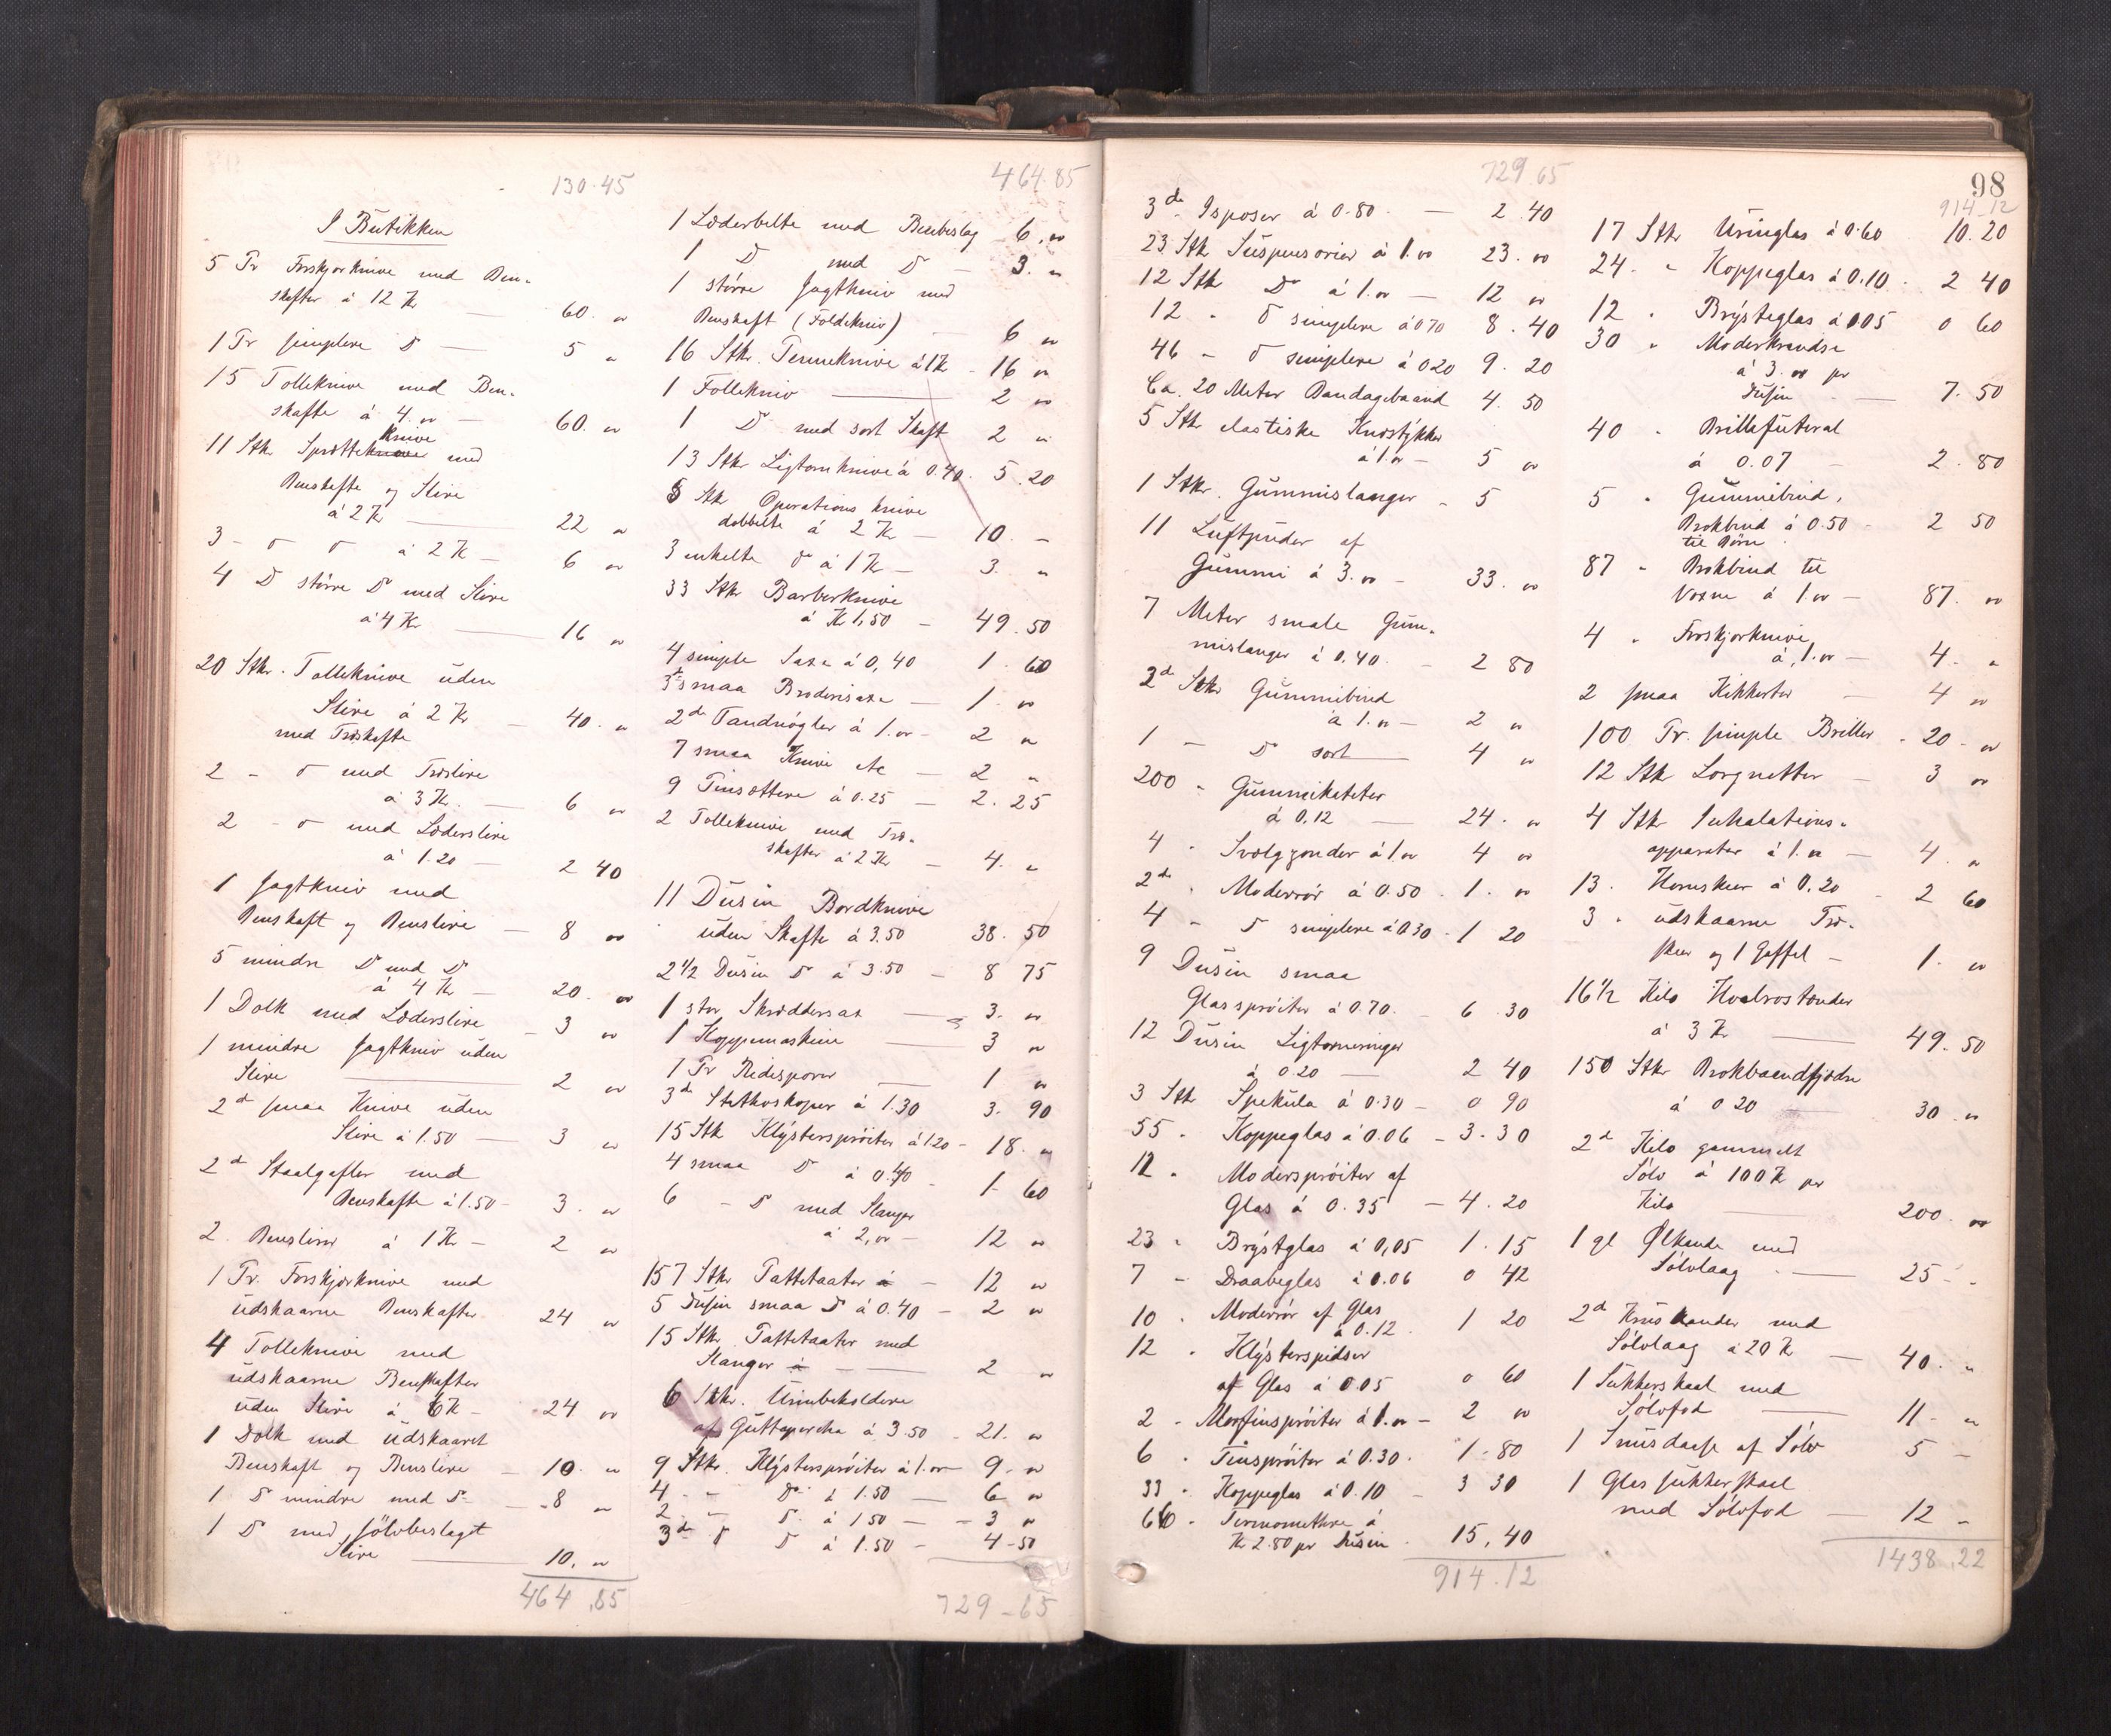 130.45
I Butikken
5 Pr Forskjærknive med Ben-
skafter á 12 Kr — 60. "
1 Pr simplere D — 5 "
15 Tolleknive med Ben-
skafte á 4.00 — 60. "
Knive
11 Stk Sprætteknive med
Benskafte og Slire
á 2 Kr — 22 "
3 - D D á 2 Kr — 6 "
4 D större D med Slire
á 4 Kr — 16 "
20 Stk. Tolleknive uden
Slire á 2 Kr — 40. "
med Træskafte
2 - D med Træslire
á 3 Kr. — 6 "
2 - D med Læderslire
á 1.20 — 2 40
1 Jagtkniv med
Benskaft og Benslire — 8 00
5 mindre D med D
á 4 Kr — 20. 00
1 Dolk med Læderslire — 3 00
1 mindre Jagtkniv uden
Slire — 2 00
2 d smaa Knive uden
Slire á 1.50 — 3 00
2 d Staalgafler med
Benskafte á 1.50 - 3. 00
2. Benslirer á 1 Kr — 2 00
1 Pr. Forskjærknive med
udskaarne Benskafter 24 00
4 Tolleknive med
udskaarne Benskafter
uden Slire á 6 Kr - 24 00
1 Dolk med udskaaret
Benskaft og Benslire — 10. "
1 D mindre med D — 8 "
1 D med Sölvbeslaget
Slire — 10. "
464.85
464.85
1 Læderbelte med Benbeslag - 6.00
1 D med D — 3. "
1 större Jagtkniv med
Benskaft (Foldekniv) — 6 "
16 Stk. Penneknive á 1 Kr - 16 "
1 Follekniv — 2 00
1 D med sort Skaft 2 "
13 Stkr Ligtornknive á 0.40. 5.20
5 Stk Operations knive
dobbelte á 2 Kr — 10. -
3 enkelte D á 1 Kr — 3. "
33 Stkr Barberknive
á Kr 1,50 — 49.50
4 simple Saxe á 0,40 1.60
3 d smaa Broderisaxe — 1. 00
2 d Tandnögler á 1.00 - 2 "
7 smaa Knive etc — 2 "
9 Pinsettere á 0.25 — 2.25
2 Tolleknive med Træ-
skafter á 2 Kr — 4. "
11 Dusin Bordknive
uden Skafte á 3.50 38.50
2 1/2 Dusin D á 3.50 — 8 75
1 stor Skræddersax — 3. 00
1 Koppemaskine — 3 00
1 Pr Ridesporer — 1 "
3 d Stethoskoper á 1.30 3. 90
15 Stk Klystersprøiter á 1.20 - 18. "
4 smaa D á 0.40 - 1 60
6 - D med Slanger
á 2,00 — 12 00
157 Stkr Pattetaater á — 12 00
5 Dusin smaa D á 0.40 — 2 00
15 Stkr. Pattetaater med
Slanger á — 2 00
6 Stkr. Urinbeholdere
af Guttapercha á 3.50 - 21. 00
9 Stkr. Klystersprøiter á 1.00 — 9. 00
4 - D á 1.50 — 6 00
2 - D. á 1 50 — 3 "
3 d D D á 1.50 — 4-50
729-65
729.65
3 d Isposer á 0.80. — 2.40
23 Stk Suspensorier á 1.00 23. 00
12 Stk D á 1.00 — 12 00
12 - D simplere á 0 70 8.40
46 - D simplere á 0 20 9. 20
Ca. 20 Meter Bandagebaand 4. 50
5 Stk elastiske Knæstykker
á 1.00 — 5 00
1 Stkr. Gummislanger - 5
11 Luftpuder af
Gummi á 3.00 - 33. 00
7 Meter smale Gum-
mislanger á 0.40. - 2 80
2 d Stkr Gummibind
á 1.00 — 2 "
1 - D sort — 4 00
200 - Gummikateter
á 0.12 — 24. 00
4 - Svælgsonder á 1.00 4 00
2 d - Moderrör á 0.50 - 1. 00
4 - D simplere á 0 30 - 1 20
9 Dusin smaa
Glassprøiter á 0.70. - 6.30
12 Dusin Ligtornringer
á 0.20 — 2 40
3 Stk Spekula á 0.30 — 0 90
55 - Koppeglas á 0.06 — 3.30
12 - Modersprøiter af
Glas á 0.35 — 4.20
23 - Brystglas á 0,05 1.15
7 - Draabeglas á 0.06 0 42
10 - Moderrör af Glas
á 0.12. 1 20
12 - Klysterspidser
af Glas á 0.05 0 60
2 - Morfinsprøiter á 1.00 — 2 00
6 - Tinsprøiter á 0.30. 1.80
33 - Koppeglas á 0.10 — 3 30
66 - Termomethre á
Kr 2.80 pr Dusin. 15,40
914.12
98
914-12
17 Stkr Uringlas á 0.60 10.20
24. - Koppeglas á 0.10. 2 40
12 - Brysteglas á 0 05 0 60
30 - Moderkrandse
á 3.00 pr
Dusin — 7.50
40 - Brillefuteral
á 0.07 — 2.80
5 - Gummibind,
Brokbind á 0.50 - 2 50
til Börn
87 - Brokbind til
Voxne á 1.00 — 87. 00
4 - Forskjærknive
á 1.00 — 4. "
2 smaa Kikkerter — 4 00
100 Pr. simple Briller - 20 - 00
12 Stk Lorgnetter — 3 00
4 Stk Inhalations-
apparater á 1.00 — 4. "
13. Hornskeer á 0.20 - 2 60
3 - udskaarne Træ-
skeer og 1 Gaffel — 1. 00
16 1/2 Kilo Hvalrostænder
á 3 Kr — 49.50
150 Stkr Brokbaandfjædre
á 0 20 — 30. 00
2 d Kilo gammelt
Sölv á 100 Kr pr
Kilo — 200. 00
1 gl Ölkande med
Sölvlaag — 25 - -
2 d Kruskander med
Sölvlaag á 20 Kr — 40. "
1 Sukkerskaal med
Sölvfod — 11 - "
1 Snusdaase af Sölv 5 —
1 Glas sukkerskaal
med Sölvfod — 12 -
1438.22